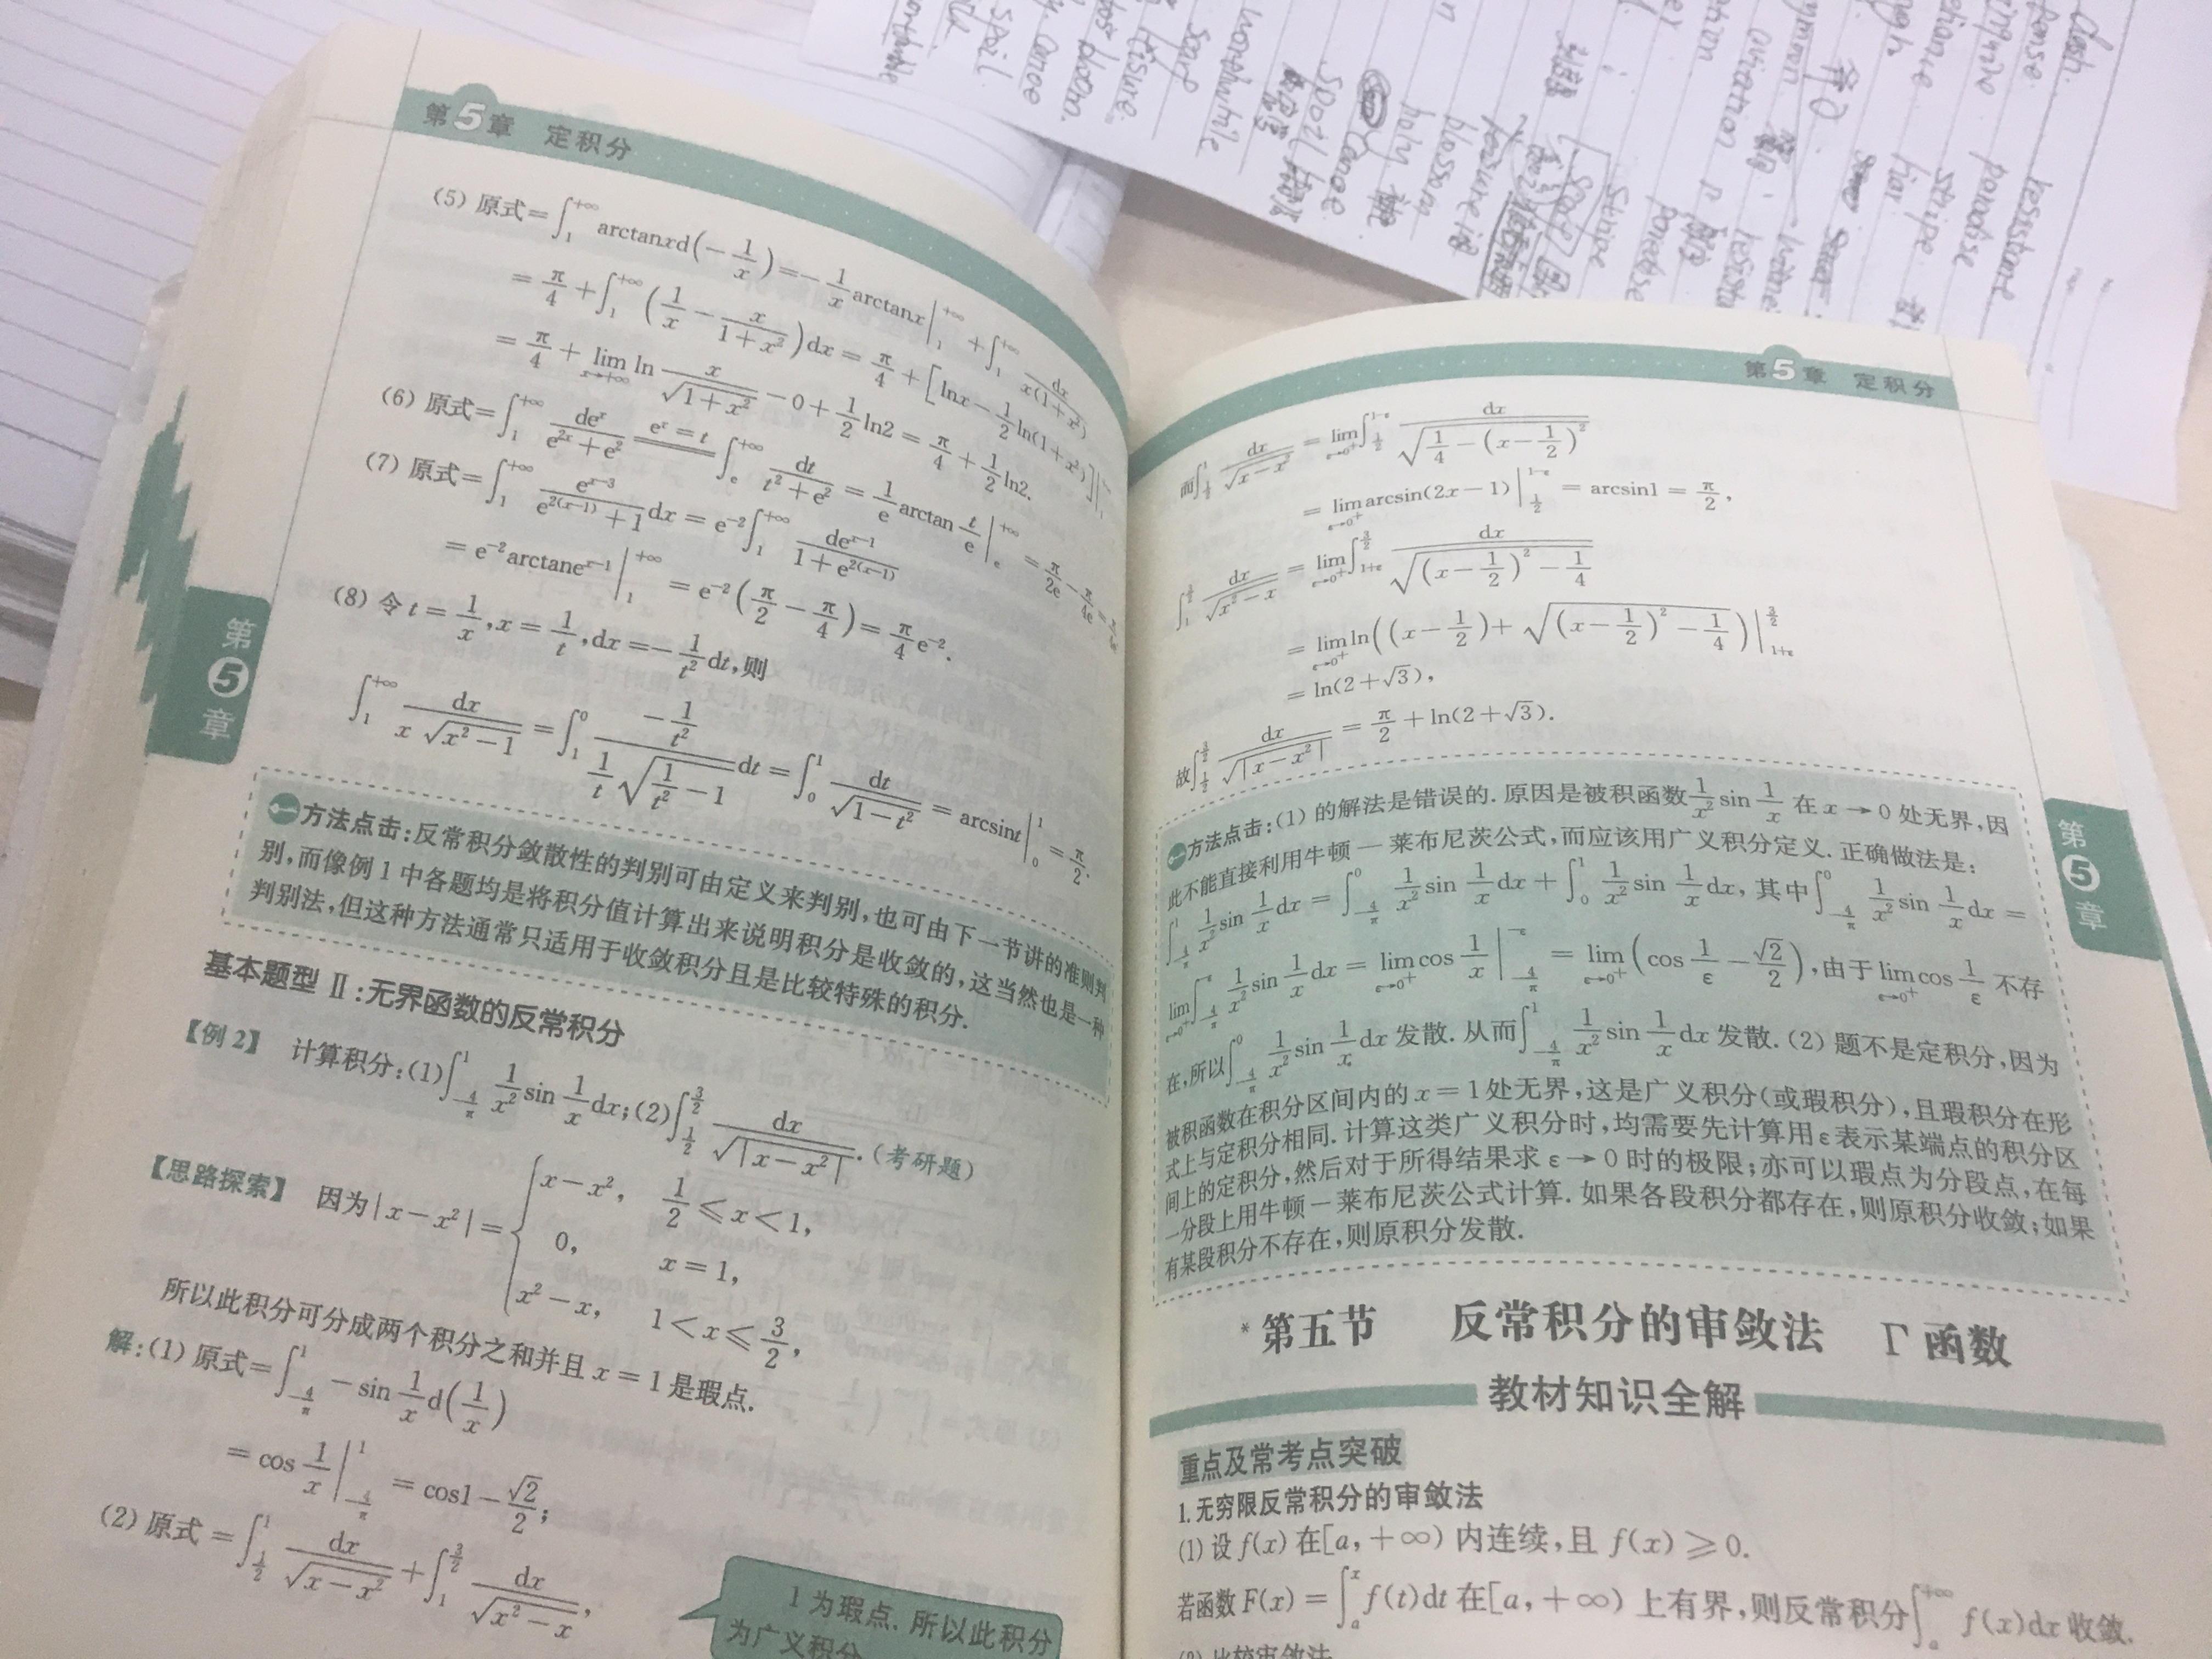 第5章 定积分
(5) 原式=∫₁^{+∞} arctanxd(-1/x)=-1/x arctanx|₁^{+∞}+∫₁^{+∞} dx/(x(1+x²))
=π/4+∫₁^{+∞}(1/x-x/(1+x²))dx=π/4+[lnx-1/2 ln(1+x²)]|₁^{+∞}
=π/4+lim_{x→+∞} ln x/√(1+x²)-0+1/2 ln2=π/4+1/2 ln2.
(6) 原式=∫₁^{+∞} deˣ/(e²ˣ+e²) =(eˣ=t)= ∫ₑ^{+∞} dt/(t²+e²)=1/e arctan t/e|ₑ^{+∞}=π/2e-π/4e=
(7) 原式=∫₁^{+∞} e^{x-3}/(e^{2(x-1)}+1)dx=e⁻²∫₁^{+∞} de^{x-1}/(1+e^{2(x-1)})
=e⁻²arctane^{x-1}|₁^{+∞}=e⁻²(π/2-π/4)=π/4 e⁻².
(8) 令 t=1/x,x=1/t,dx=-1/t² dt,则
∫₁^{+∞} dx/(x√(x²-1))=∫₁⁰ (-1/t²)/((1/t)√(1/t²-1))dt=∫₀¹ dt/√(1-t²)=arcsint|₀¹=π/2.
方法点击:反常积分敛散性的判别可由定义来判别,也可由下一节讲的准则判
别,而像例1中各题均是将积分值计算出来说明积分是收敛的,这当然也是一种
判别法,但这种方法通常只适用于收敛积分且是比较特殊的积分.
基本题型 Ⅱ:无界函数的反常积分
【例2】 计算积分:(1)∫_{-4/π}^1 1/x² sin 1/x dx;(2)∫_{1/2}^{3/2} dx/√|x-x²|.(考研题)
【思路探索】 因为|x-x²|={x-x², 1/2≤x<1,
0, x=1,
x²-x, 1<x≤3/2,
所以此积分可分成两个积分之和并且 x=1 是瑕点.
解:(1) 原式=∫_{-4/π}^1 -sin 1/x d(1/x)
=cos 1/x|_{-4/π}^1=cos1-√2/2;
(2) 原式=∫_{1/2}^1 dx/√(x-x²)+∫₁^{3/2} dx/√(x²-x),
1为瑕点.所以此积分
为广义积分
第5章
第5章 定积分
而∫_{1/2}^1 dx/√(x-x²)=lim_{ε→0⁺}∫_{1/2}^{1-ε} dx/√(1/4-(x-1/2)²)
=lim_{ε→0⁺} arcsin(2x-1)|_{1/2}^{1-ε}=arcsin1=π/2,
∫₁^{3/2} dx/√(x²-x)=lim_{ε→0⁺}∫_{1+ε}^{3/2} dx/√((x-1/2)²-1/4)
=lim_{ε→0⁺} ln((x-1/2)+√((x-1/2)²-1/4))|_{1+ε}^{3/2}
=ln(2+√3),
故∫_{1/2}^{3/2} dx/√|x-x²|=π/2+ln(2+√3).
方法点击:(1) 的解法是错误的.原因是被积函数 1/x² sin 1/x 在 x→0 处无界,因
此不能直接利用牛顿—莱布尼茨公式,而应该用广义积分定义.正确做法是:
∫_{-4/π}^1 1/x² sin 1/x dx=∫_{-4/π}^0 1/x² sin 1/x dx+∫₀¹ 1/x² sin 1/x dx,其中∫_{-4/π}^0 1/x² sin 1/x dx=
lim_{ε→0⁺}∫_{-4/π}^{-ε} 1/x² sin 1/x dx=lim_{ε→0⁺} cos 1/x|_{-4/π}^{-ε}=lim_{ε→0⁺}(cos 1/ε-√2/2),由于lim_{ε→0⁺} cos 1/ε 不存
在,所以∫_{-4/π}^0 1/x² sin 1/x dx 发散.从而∫_{-4/π}^1 1/x² sin 1/x dx 发散.(2) 题不是定积分,因为
被积函数在积分区间内的 x=1处无界,这是广义积分(或瑕积分),且瑕积分在形
式上与定积分相同.计算这类广义积分时,均需要先计算用ε表示某端点的积分区
间上的定积分,然后对于所得结果求 ε→0 时的极限;亦可以瑕点为分段点,在每
一分段上用牛顿—莱布尼茨公式计算.如果各段积分都存在,则原积分收敛;如果
有某段积分不存在,则原积分发散.
*第五节 反常积分的审敛法 Γ函数
教材知识全解
重点及常考点突破
1.无穷限反常积分的审敛法
(1) 设 f(x) 在[a,+∞) 内连续,且 f(x)≥0.
若函数 F(x)=∫ₐˣ f(t)dt 在[a,+∞) 上有界,则反常积分∫ₐ^{+∞} f(x)dx 收敛.
(2) 比较审敛法
第5章
spoil
canoe
holy
blossom
Stripe
paradise
stripe
paradise